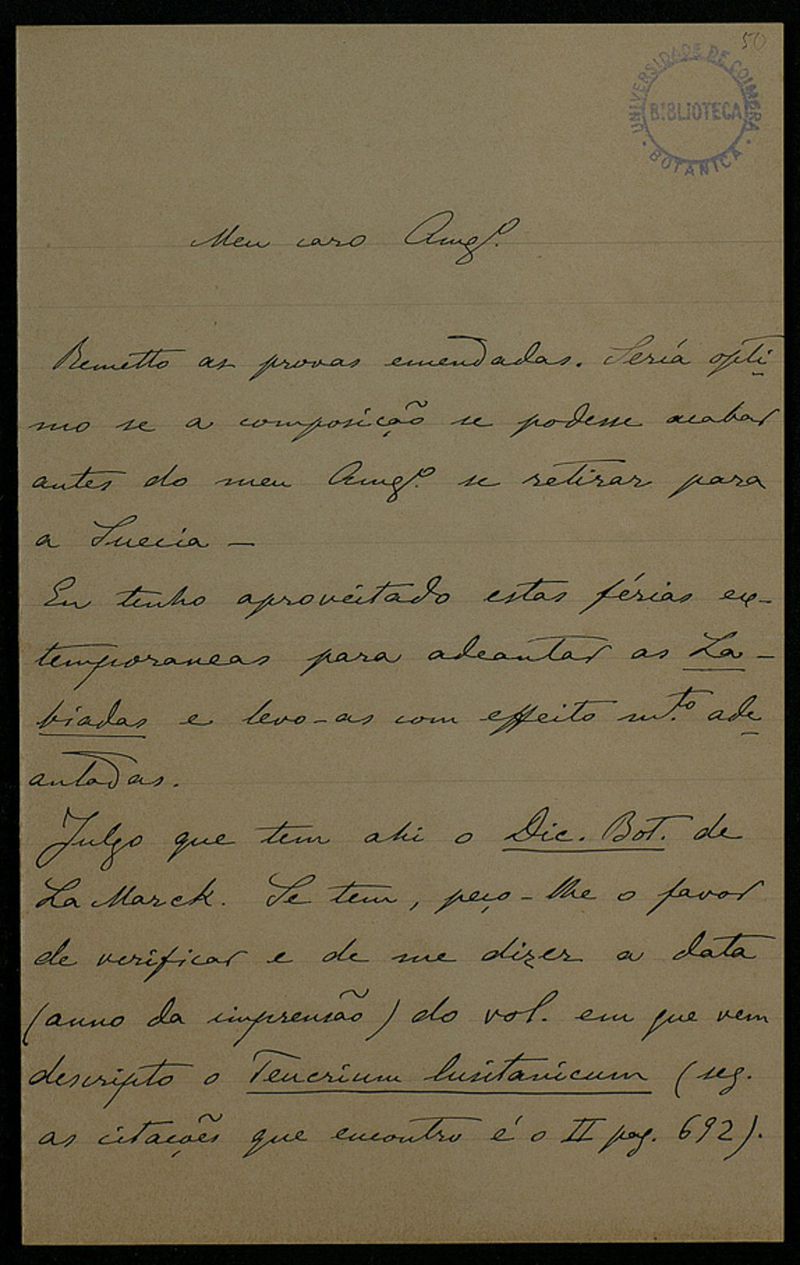 50
UNIVERSIDADE DE COIMBRA
BIBLIOTECA
BOTANICA
Meu caro Amgº.
Remetto as provas emendadas. Sería opti-
mo se a composição se podesse acabar
antes do meu Amgº. se retirar para
a Suecia —
Eu tenho aproveitado estas férias ex-
temporaneas para adeantar as La-
biadas e levo-as com effeito mtº. ade-
antadas.
Julgo que tem ahi o Dic. Bot. de
La Marck. Se tem, peço-lhe o favor
de verificar e de me dizer a data
(anno da imprensão) do vol. em que vem
descripto o Teucrium lusitanicum (seg.
as citações que encontro é o II pag. 692).